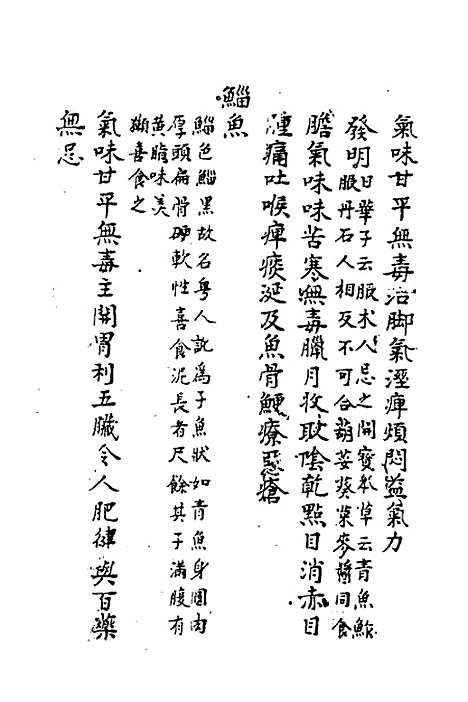 氣味甘平無毒治脚氣溼痺煩悶益氣力
發明日華子云服朮人忌之開寶本草云青魚鮓
服丹石人相反不可合葫荽葵菜麥醬同食
膽氣味味苦寒無毒臘月收取陰乾點目消赤目
腫痛吐喉痺痰涎及魚骨鯁療惡瘡
鯔魚
鯔色鯔黑故名粵人訛爲子魚狀如青魚身圓肉
厚頭扁骨硬軟性喜食泥長者尺餘其子滿腹有
黃脂味美
獺喜食之
氣味甘平無毒主開胃利五臟令人肥健與百藥
無忌